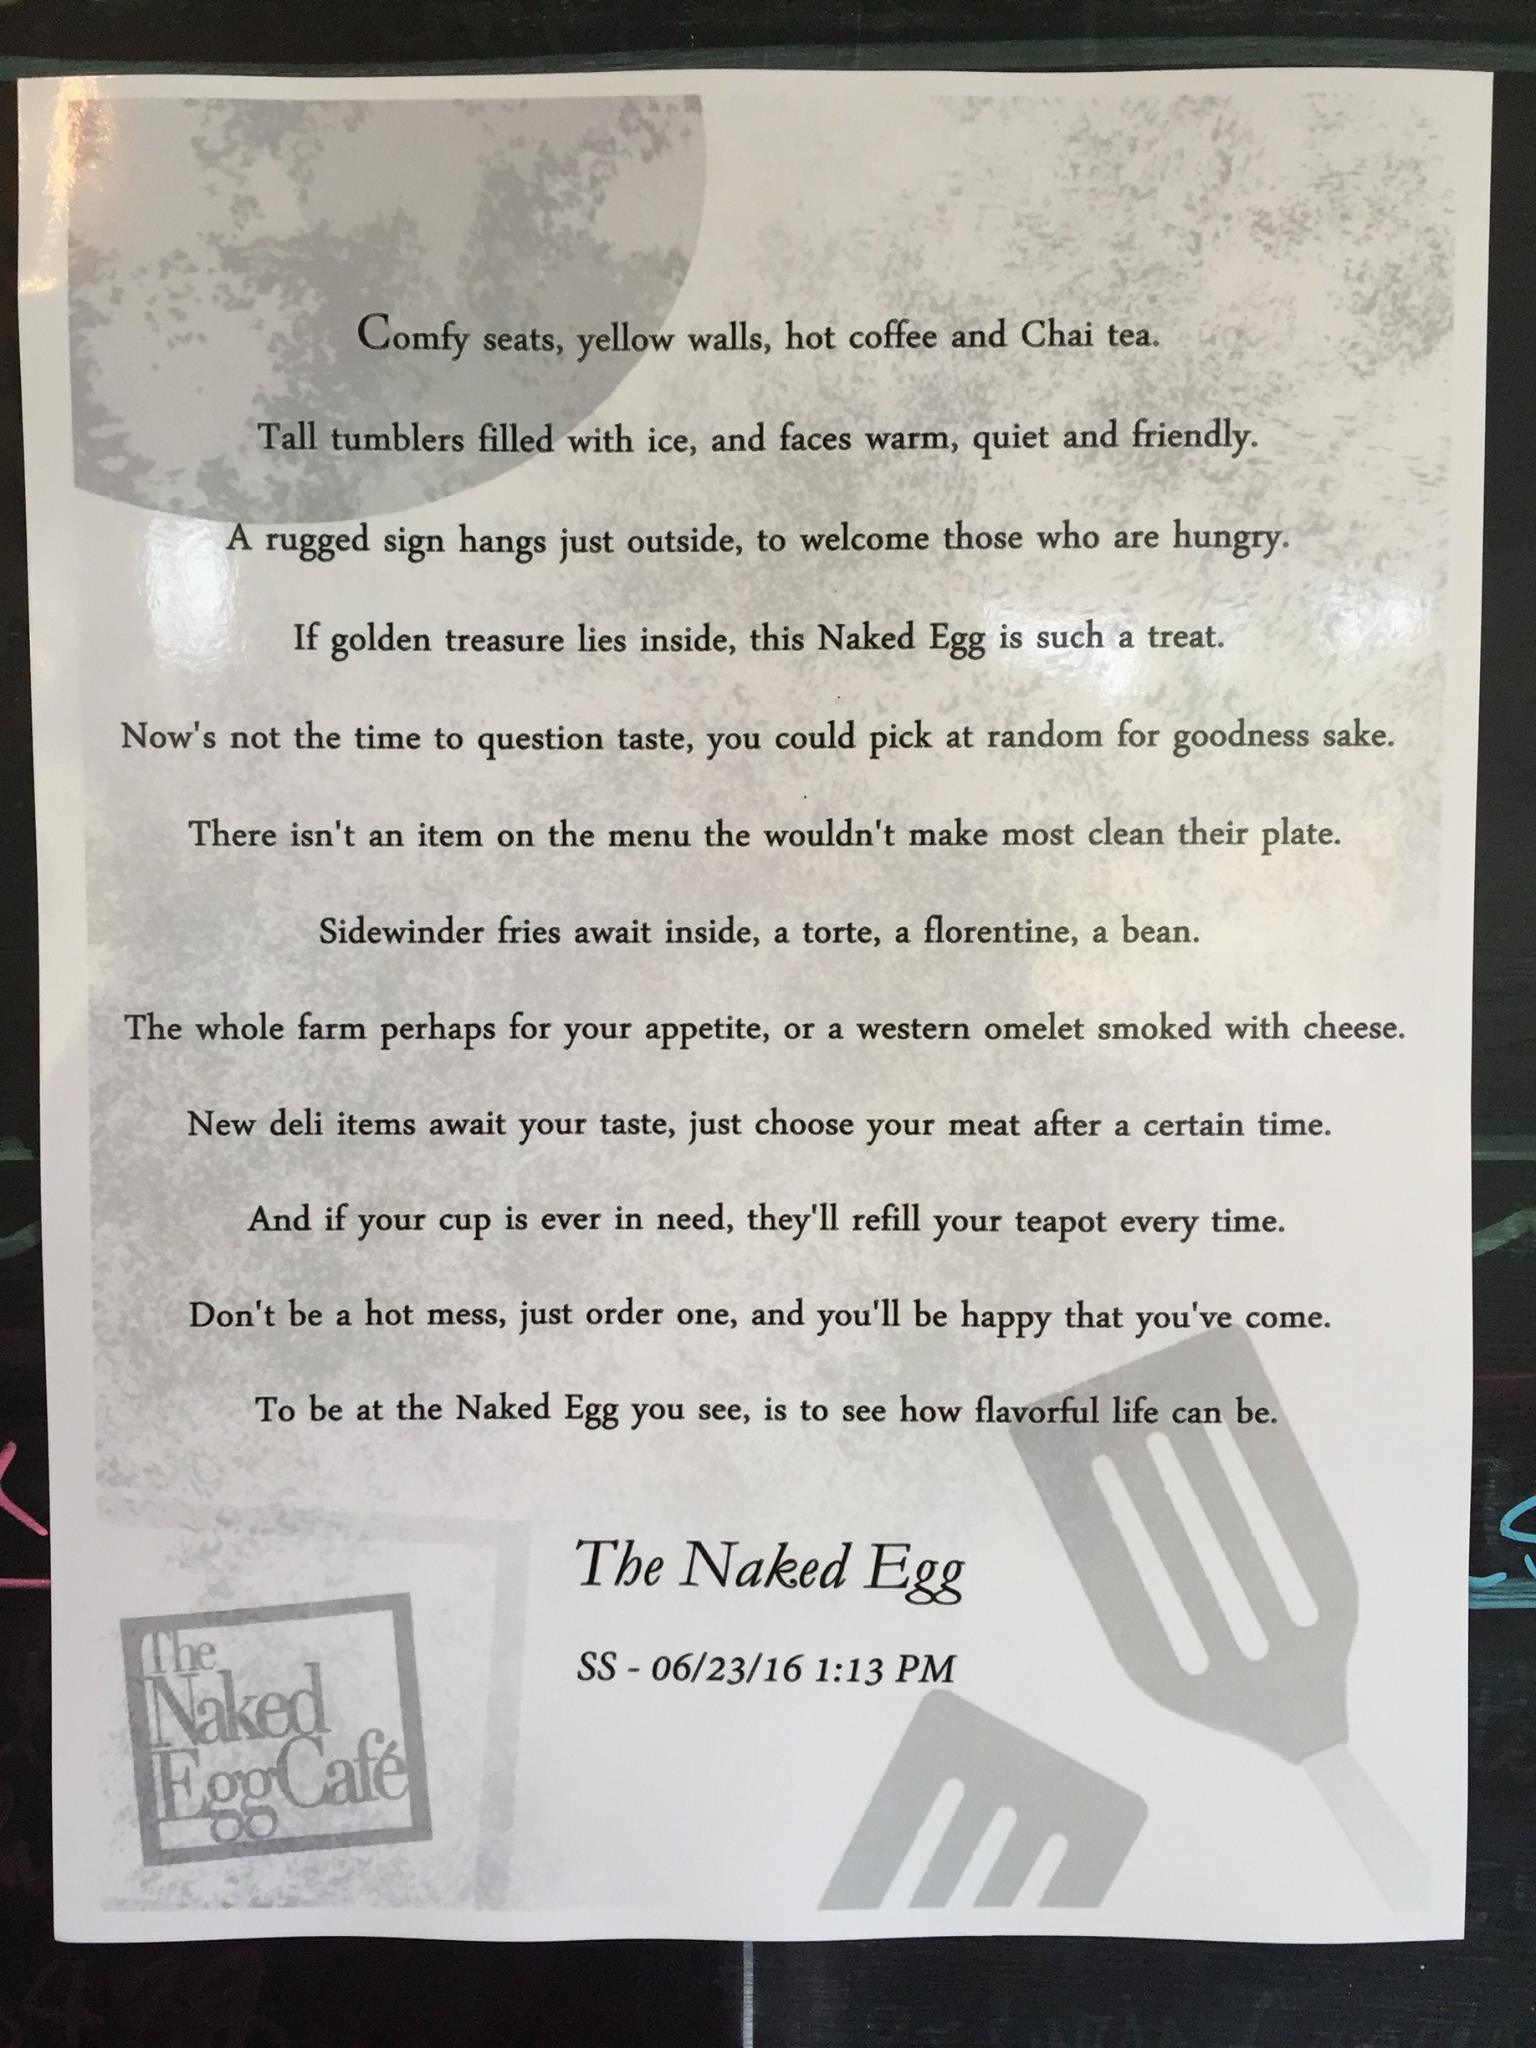 Comfy seats, yellow walls, hot coffee and Chai tea.
Tall tumblers filled with ice, and faces warm, quiet and friendly.
A rugged sign hangs just outside, to welcome those who are hungry.
If golden treasure lies inside, this Naked Egg is such a treat.
Now's not the time to question taste, you could pick at random for goodness sake.
There isn't an item on the menu the wouldn't make most clean their plate.
Sidewinder fries await inside, a torte, a florentine, a bean.
The whole farm perhaps for your appetite, or a western omelet smoked with cheese.
New deli items await your taste, just choose your meat after a certain time.
And if your cup is ever in need, they'll refill your teapot every time.
Don't be a hot mess, just order one, and you'll be happy that you've come.
To be at the Naked Egg you see, is to see how flavorful life can be.
The Naked Egg
SS - 06/23/16 1:13 PM
The
Naked
Egg Café